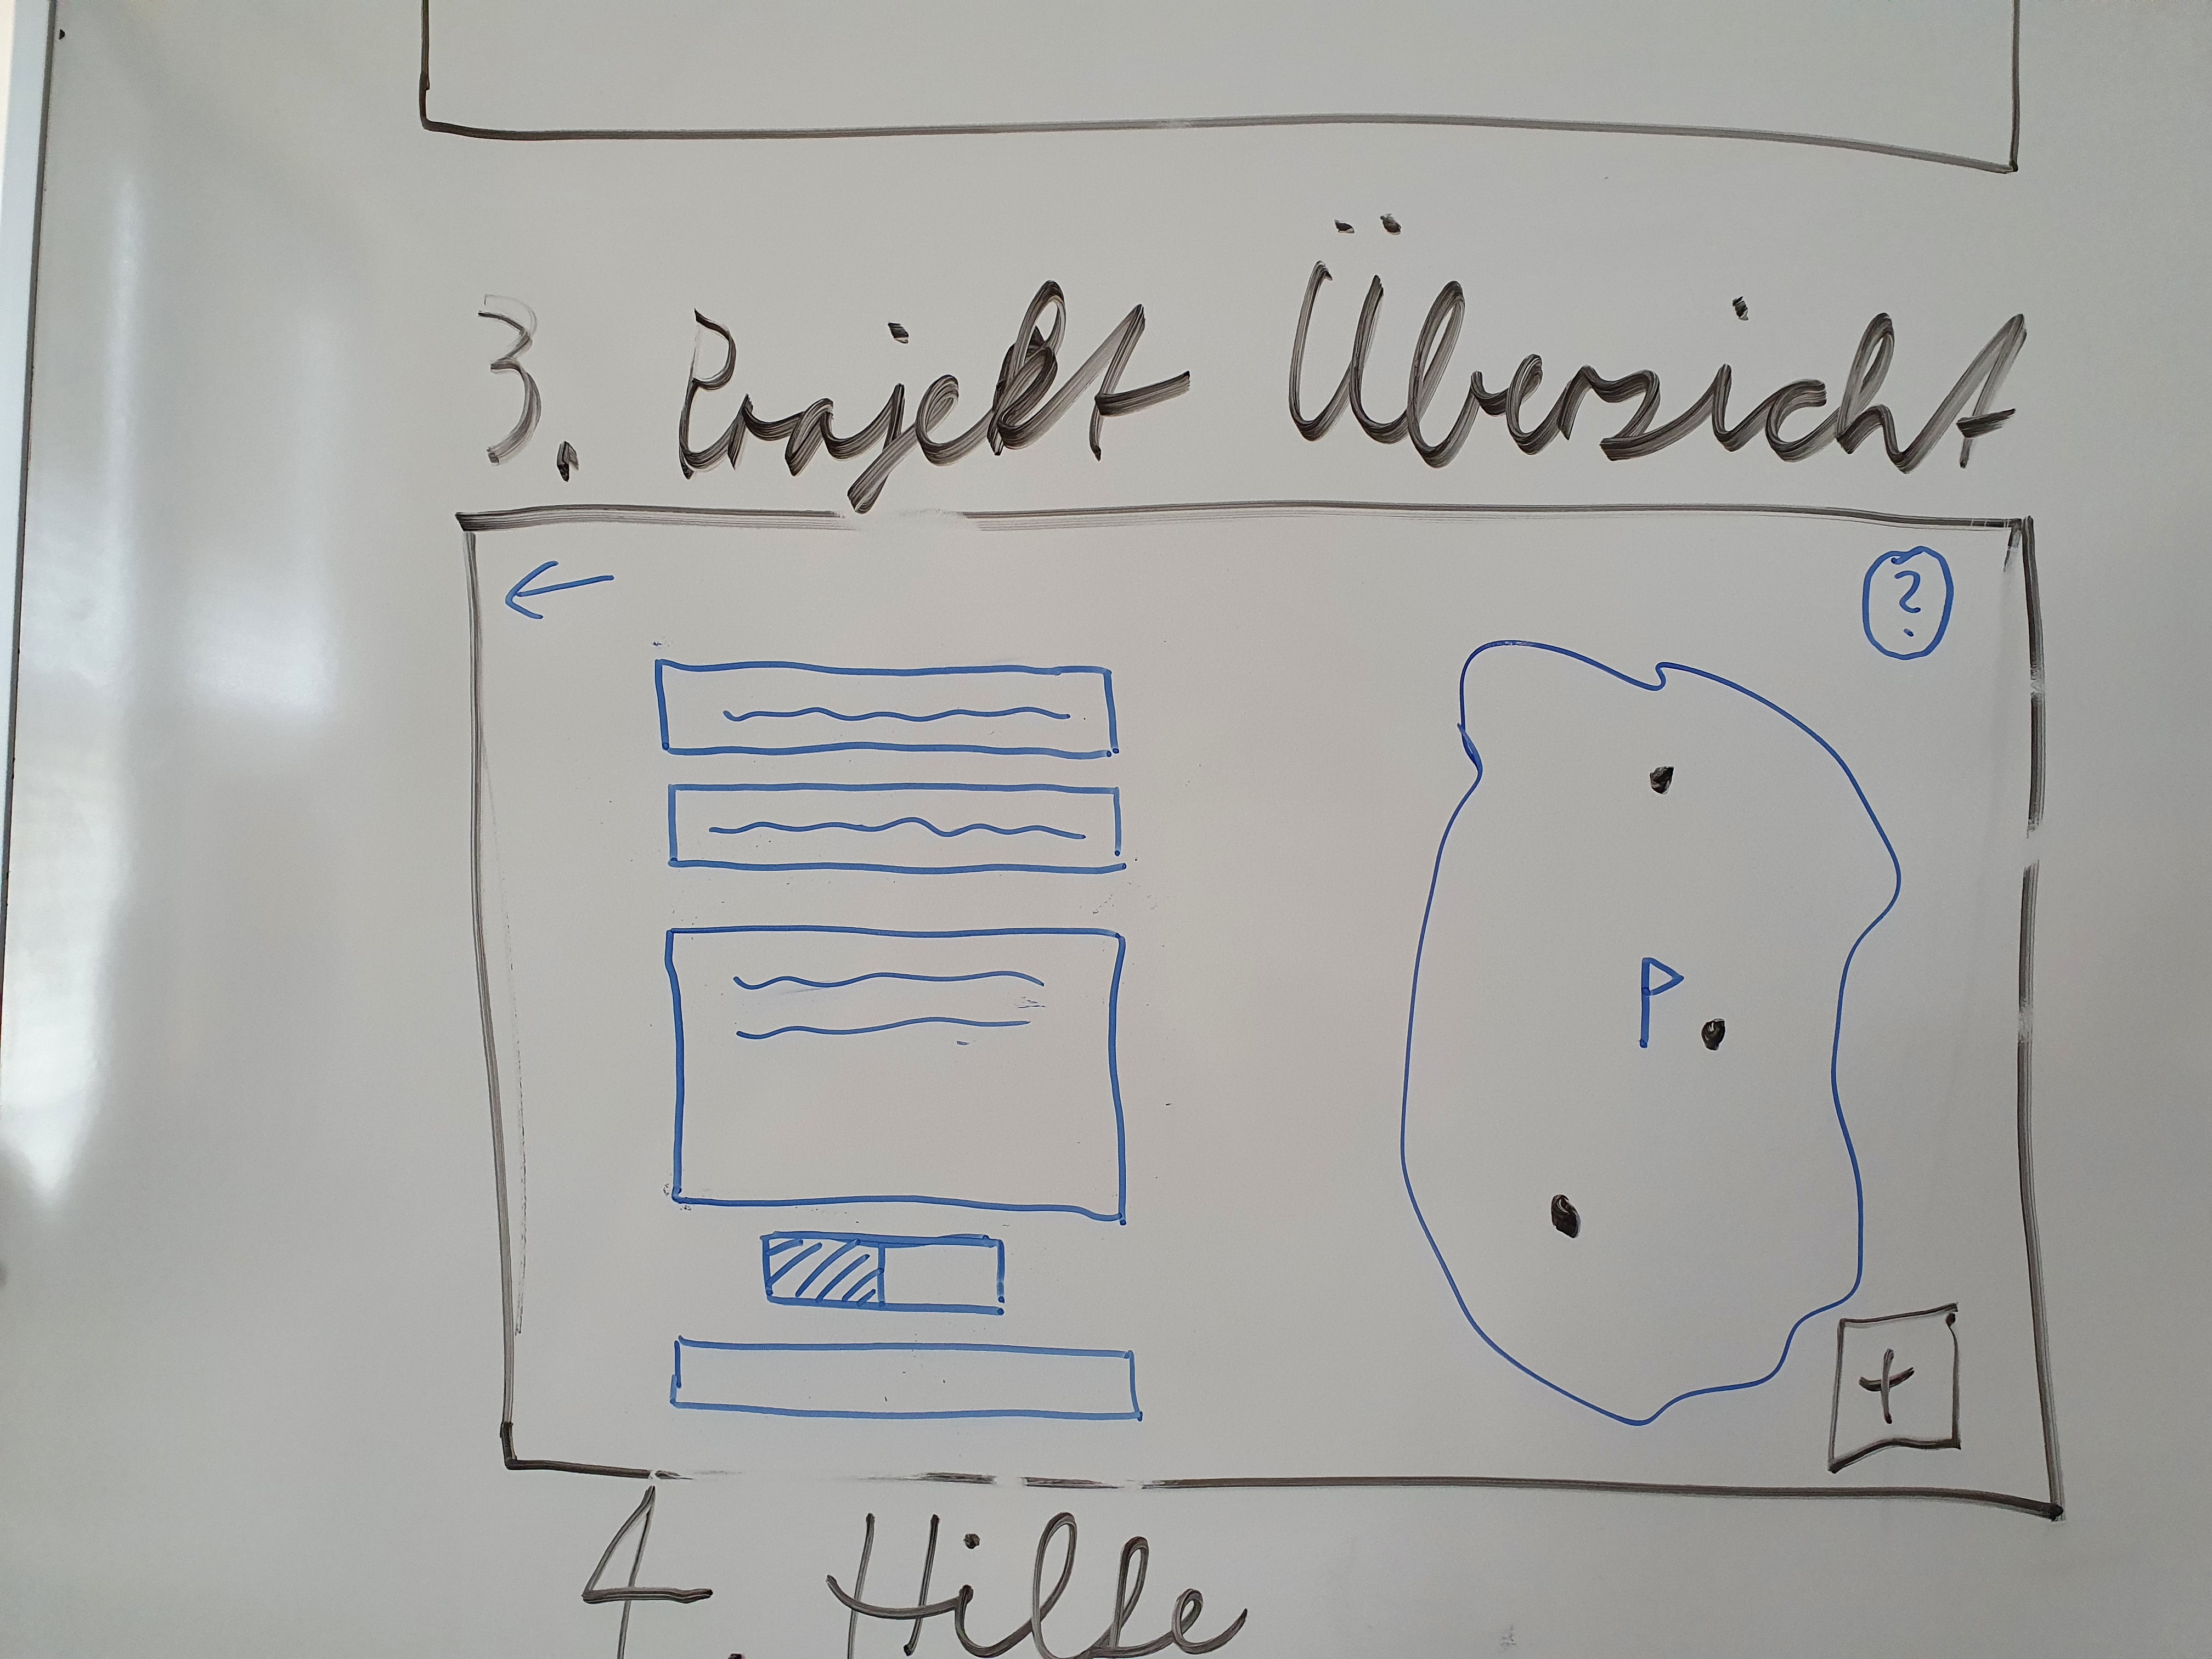 3. Projekt Übersicht
?
P
+
4. Hilfe